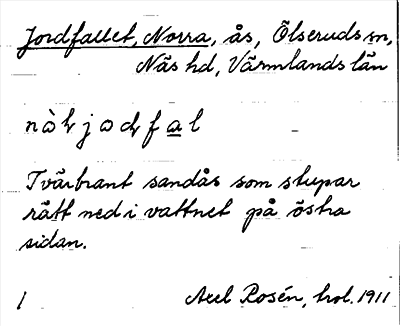 Jordfallet, Norra, ås, Ölseruds sn,
Näs hd, Värmlands län
Tvärbrant sandås som stupar
rätt ned i vattnet på östra
sidan.
1 Axel Rosén, hol. 1911